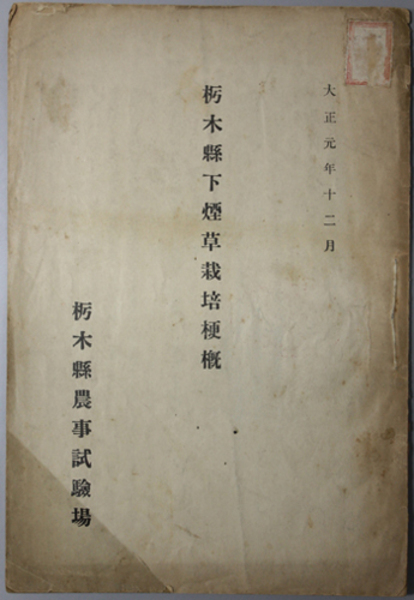 大正元年十二月
栃木縣下煙草栽培梗概
栃木縣農事試驗場